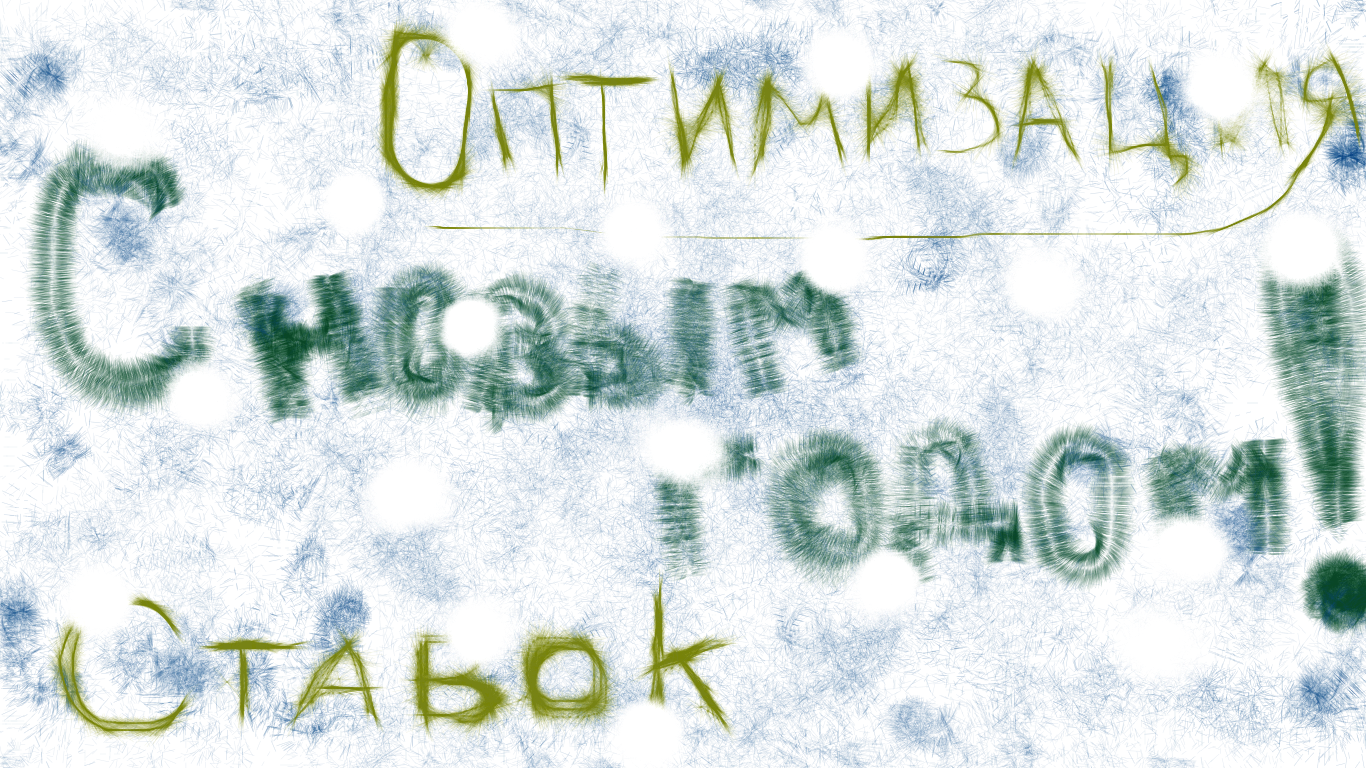 Оптимизация
С новым
годом!
Ставок